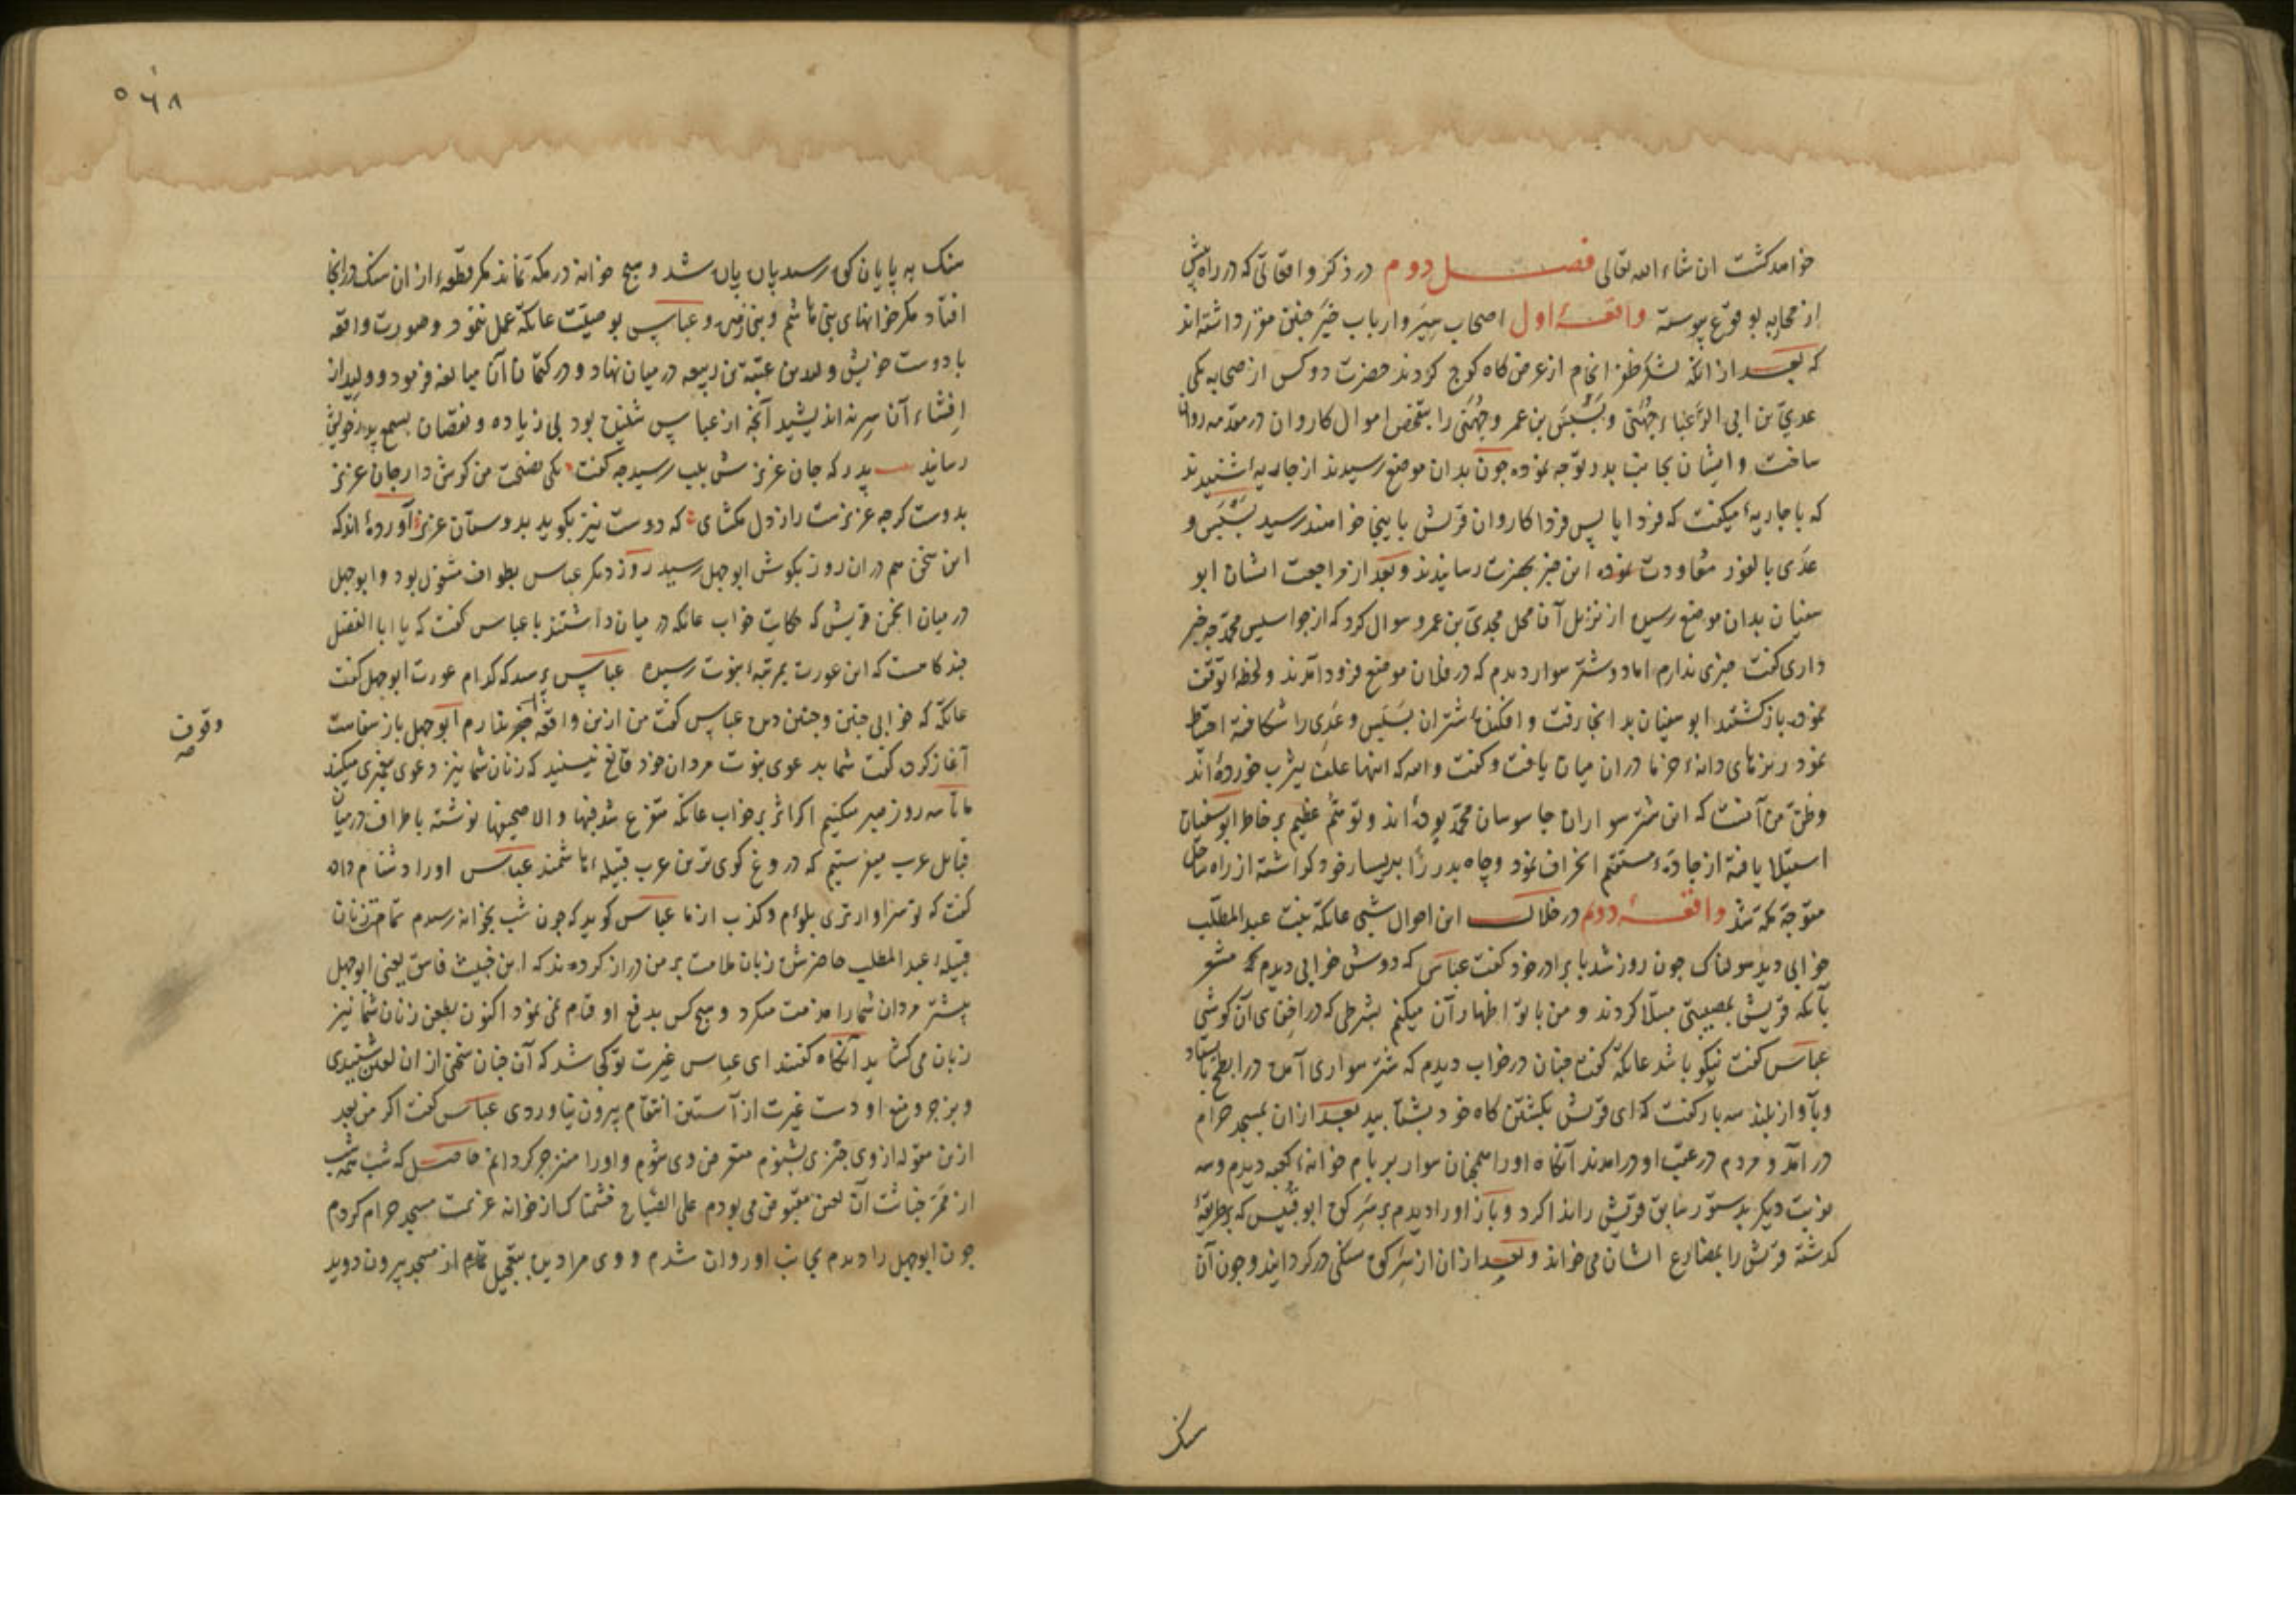 خواهد کشت ان شاء الله تعالی فصل دوم در ذکر واقعاتی که در راه پیش
از محاربه بوقوع پیوسته واقعهٔ اول اصحاب سِیَر و ارباب خبَر جنین مقرر داشته‌اند
که بعد از انکه لشکر ظفر انجام از عرض کاه کوچ کردند حضرت دو کس از صحابه یکی
عدیّ بن ابی الزَّعباء جُهَنی و بَسْبَس بن عمرو جُهَنی را بتفحص اموال کاروان در مقدمه روان
ساخت و ایشان بجانب بدر توجه نموده جون بدان موضع رسیدند از جاریهٔ شنیدند
که با جاریهٔ میکفت که فردا یا پس فردا کاروان قریش باینجا خواهند رسید بَسْبَس و
عدی بالفور معاودت نموده این خبر بحضرت رسانیدند و بعد از مراجعت ایشان ابو
سفیان بدان موضع رسیده از نزیل آن محل مجدی بن عمرو سوال کرد که از جواسیس محمد چه خبر
داری کفت خبری ندارم اما دو شتر سوار دیدم که در فلان موضع فرود آمدند و لحظهٔ توقف
نموده باز کشتند ابو سفیان بدانجا رفت و افکندهٔ شتران بسبس و عدی را شکافته احتیاط
نمود ریزهای دانهٔ خرما در ان میان یافت و کفت والله که اینها علف یثرب خورده‌اند
وظنّ من آنست که این شتر سواران جاسوسان محمد بوده‌اند و توهّم عظیم بر خاطر ابو سفیان
استیلا یافته از جادهٔ مستقیم انحراف نمود و چاه بدر را بر یسار خود کذاشته از راه ساحل
متوجه مکه شد واقعهٔ دوم در خلال این احوال شبی عاتکه بنت عبد المطلب
خوابی دید هولناک جون روز شد با برادر خود کفت عباس که دوش خوابی دیدم که مشعر
بآنکه قریش بمصیبتی مبتلا کردند و من با تو اظهار آن میکنم بشرطی که در اخفای آن کوشی
عباس کفت نیکو باشد عاتکه کفت جنان در خواب دیدم که شتر سواری آمده در ابطح باستاد
و بآواز بلند سه بار کفت که ای قریش بکشتن کاه خود بشتابید بعد از ان بمسجد حرام
در آمد و مردم در عقب او درامدند آنکاه او را همچنان سوار بر بام خانهٔ کعبه دیدم و سه
نوبت دیکر بدستور سابق قریش را ندا کرد و باز او را دیدم بر سَرِ کوه ابو قُبَیس که بطریقهٔ
کذشته قریش را بمصارع ایشان می‌خواند و بعد از ان از سَرِ کوه سنکی در کردانید و جون آن
سنک
۵۶۸
سنک به پایان کوه رسید پاره پاره شد و هیچ خوانه در مکه نماند مکر قطعهٔ از ان سنک در انجا
افتاد مکر خوانهای بنی هاشم و بنی زهره و عباس بوصیت عاتکه عمل ننمود و صورت واقعه
با دوست خویش ولید بن عتبة بن ربیعه در میان نهاد و در کتمان آن مبالغه فرمود و ولید از
افشاء آن سِر نه اندیشید آنچه از عباس شنیده بود بی زیاده و نقصان بسمع پدر خویش
رسانید پدر که جان عزیزش بلب رسید چه کفت یکی نصیحت من کوش دار جان عزیز
بدوست کرچه عزیزست راز دل مکشای که دوست نیز بکوید بدوستان عزیز آورده‌اند که
این سخن هم در ان روز بکوش ابو جهل رسید روز دیکر عباس بطواف مشغول بود و ابو جهل
در میان انجمن قریش که حکایت خواب عاتکه در میان داشتند با عباس کفت که یا ابا الفضل
جند کاهست که این عورت بمرتبهٔ نبوت رسیده عباس پرسید که کدام عورت ابو جهل کفت
عاتکه که خوابی جنین و جنین دیده عباس کفت من ازین واقعه خبر ندارم ابو جهل باز سفاهت
وقوف
آغاز کرده کفت شما بدعوی نبوت مردان خود قانع نیستید که زنان شما نیز دعوی پیغمبری میکنند
ما تا سه روز صبر میکنیم اکر اثر بر خواب عاتکه متفرع شد فبها والا صحیفها نوشته باطراف در میان
قبایل عرب میفرستیم که دروغ کوی ترین عرب قبیلهٔ هاشمند عباس او را دشنام داده
کفت که تو سزاوارتری بلوم و کذب از ما عباس کوید که جون شب بخوانه رسیدم تمام زنان
قبیلهٔ عبد المطلب حاضر شده زبان ملامت بر من دراز کردند که این خبیث فاسق یعنی ابو جهل
پیشتر مردان شما را مذمت میکرد و هیچ کس بدفع او قیام نمی نمود اکنون بطعن زنان شما نیز
زبان می کشاید آنکاه کفتند ای عباس غیرت تو کی شد که آن جنان سخن از ان لعین شنیدی
و بزجر و منع او دست غیرت از آستین انتقام بیرون نیاوردی عباس کفت اکر من بعد
ازین مقوله از وی چیزی بشنوم متعرض وی شوم و او را منزجر کردانم حاصل که شب همه شب
از ممر خباثت آن لعین مقبوض می بودم علی الصباح خشمناک از خوانه عزیمت مسجد حرام کردم
جون ابو جهل را دیدم بجانب او روان شدم و وی مرا دیده بتعجیل تمام از مسجد بیرون دوید